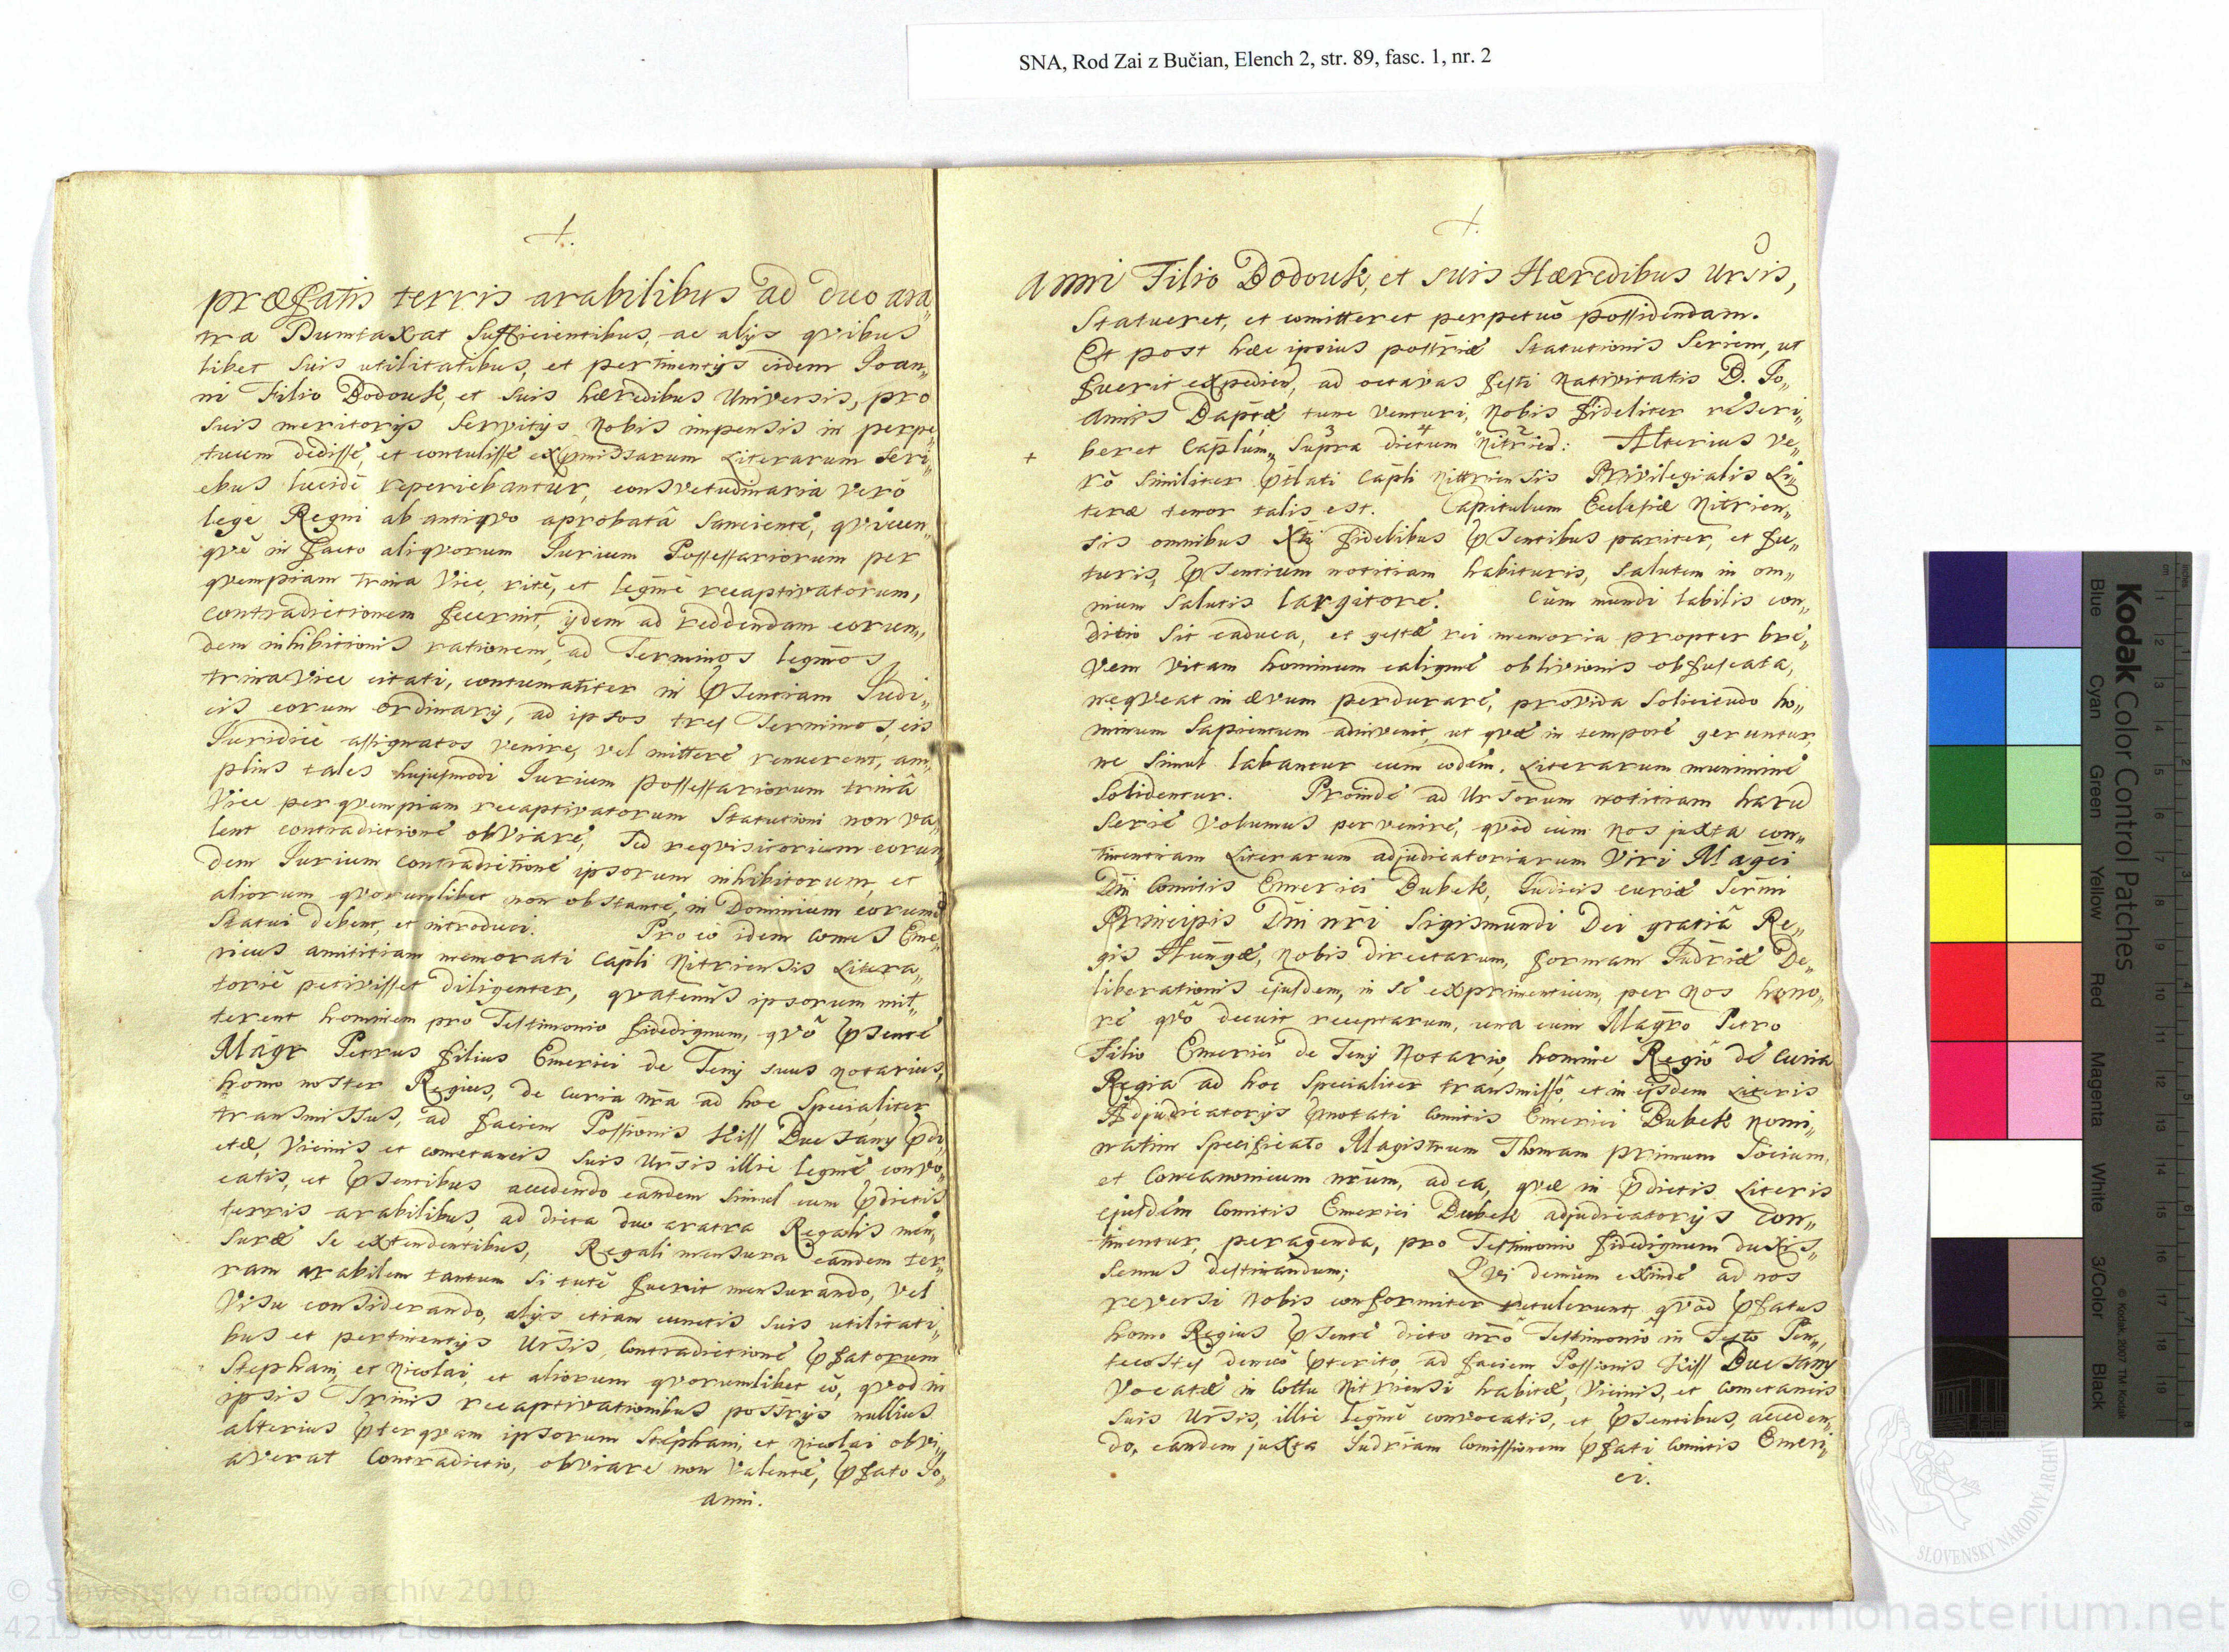 SNA, Rod Zai z Bučian, Elench 2, str. 89, fasc. 1, nr. 2
+.
præfatis terris arabilibus ad duo ara„
tra Dumtaxat sufficientibus, ac alijs qvibus
libet suis utilitatibus, et pertinentijs eidem Joan„
ni Filio Dodouk, et suis hæredibus Universis, pro
suis meritorijs servitijs nobis impensis in perpe„
tuum dedisse, et contulisse exp̄missarum Literarum seri„
ebus lucide reperiebantur, consvetudinaria verò
lege Regni ab antiqvo aprobatâ sanciente, qvicun„
qvè in facto aliqvorum Jurium Possessariorum per
qvempiam trina Vice, ritè, et leg̅mè recaptivatorum,
contradictionem fecerint, ijdem ad reddendam eorun„
dem inhibitionis rationem, ad Terminos legm̅os
trina Vice citati, contumaciter in p̄sentiam Judi„
cis eorum ordinarij, ad ipsos tres Terminos, eis
Juridicè assignatos venire, vel mittere renuerent, am„
plius tales hujusmodi Jurium possessariorum trinâ
Vice per qvempiam recaptivatorum Statutioni non va„
lent contradictione obviare, sed reqvisitorium eorun
dem Jurium contradictione ipsorum inhibitorum, et
aliorum qvorumlibet non obstante, in Dominium eorum
Statui debent, et introduci. Pro eo idem Comes Eme„
ricus amicitiam memorati Cap̅li Nitriensis Litera„
toriè petivisset diligenter, qvatenùs ipsorum mit„
terent hominem pro Testimonio fidedignum, qvô p̄sente
Mag̅r Petrus filius Emerici de Tenj suus notarius,
homo noster Regius, de Curia nr̅a ad hoc specialiter
transmissus, ad faciem Poss̅ionis Kiss Bucsany p̄di„
ctæ, Vicinis et cometaneis suis Ur̅sis illic legm̅è convo„
catis, et p̄sentibus accedendo eandem simul cum p̄dictis
terris arabilibus, ad dicta duo aratra Regalis men„
suræ se extendentibus, Regali mensura eandem ter„
ram arabilem tantum si tutè fuerit mensurando, vel
Visu considerando, alijs etiam cunctis suis utilitati„
bus et pertinentijs Ur̅sis, contradictione p̄fatorum
Stephani, et Nicolai, et aliorum qvorumlibet eò, qvod in
ipsis Trinis recaptivationibus postr̅ijs nullius
alterius p̄terqvam ipsorum Stephani, et Nicolai obvi„
averat Contradictio, obviare non valente, p̄fato Jo„
anni.
+.
anni Filio Dodouk, et suis Hæredibus Ur̅sis,
Statueret, et com̅itteret perpetuò possidendam.
Et post hæc ipsius postr̅iæ Statutionis seriem, ut
fuerit expedien̅, ad octavas festi Nativitatis B. Jo„
annis Bap̅tæ tunc venturi, nobis fideliter rescri„
+ beret Cap̅lum„ supra dictum Nitrien̅: Alterius ve„
rò similiter p̄tlati Cap̅li Nittriensis Privilegialis Li„
teræ tenor talis est. Capitulum Ecclesiæ Nitrien„
sis omnibus Xti fidelibus p̄sentibus pariter, et fu„
turis, p̄sentium notitiam habituris, salutem in om„
nium salutis largitore. Cùm mundi labilis con„
ditio sit caduca, et gestæ rei memoria propter bre„
vem vitam hominum caligine oblivionis obfuscata,
neqveat in ævum perdurare, provida solicitudo ho„
minum sapientum adinvenit, ut qvæ in tempore geruntur,
ne simul labantur cum eodem, Literarum munimine
solidentur. Proinde ad Ur̅sorum notitiam harud
serie volumus pervenire, qvòd cùm nos juxta con„
tinentiam Literarum adjudicatoriarum Viri Mag̅ci
Dn̅i Comitis Emerici Bubek, Judicis curiæ Ser̅mi
Principis Dn̅i nr̅i Sigismundi Dei gratiâ Re„
gis Hung̅æ, nobis directarum, formam Judr̅iæ De„
liberationis ejusdem, in se exprimentium, per nos hono„
re qvô decuit receptarum, una cum Mag̅ro Petro
Filio Emerici de Tenj Notario, homine Regiô de Curia
Regia ad hoc specialiter transmissô, et in ejsdem Literis
Adjudicatorijs p̄notati Comitis Emerici Bubek nomi„
natim specificato Magistrum Thomam primum Socium,
et Concanonicum nr̅um, ad ea, qvæ in p̄dictis Literis
ejusdem Comitis Emerici Bubek adjudicatorijs con„
tinentur, peragenda, pro Testimonio fidedignum duxis„
semus destinandum; Qvi demùm exinde ad nos
reversi nobis conformiter retulerunt, qvòd p̄fatus
homo Regius p̄sente dicto nr̅ô Testimoniô in Festo Pen„
tecostes denuò p̄terito, ad faciem Poss̅ionis Kiss Bucsany
Vocatæ in Cottu Nitriensi habitæ, Vicinis, et Cometaneis
suis Ur̅sis, illic leg̅mè convocatis, et p̄sentibus, acceden„
do, eandem juxta Judr̅iam Comissionem p̄fati Comitis Emeri„
ci.
Kodak Color Control Patches
Blue Cyan Green Yellow Red Magenta White 3/Color Black
© Kodak, 2007 TM: Kodak
SLOVENSKÝ NÁRODNÝ ARCHÍV
© Slovenský národný archív 2010
www.monasterium.net